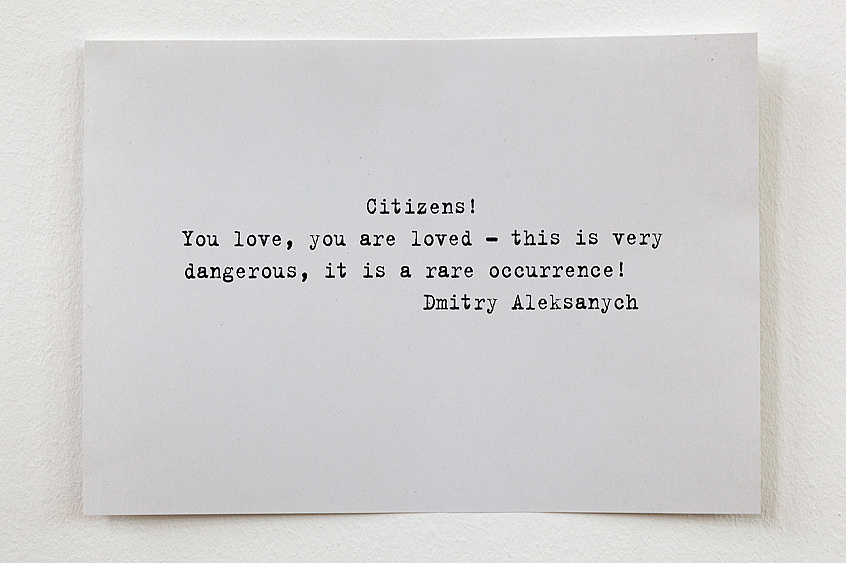 Citizens!
You love, you are loved – this is very
dangerous, it is a rare occurrence!
Dmitry Aleksanych